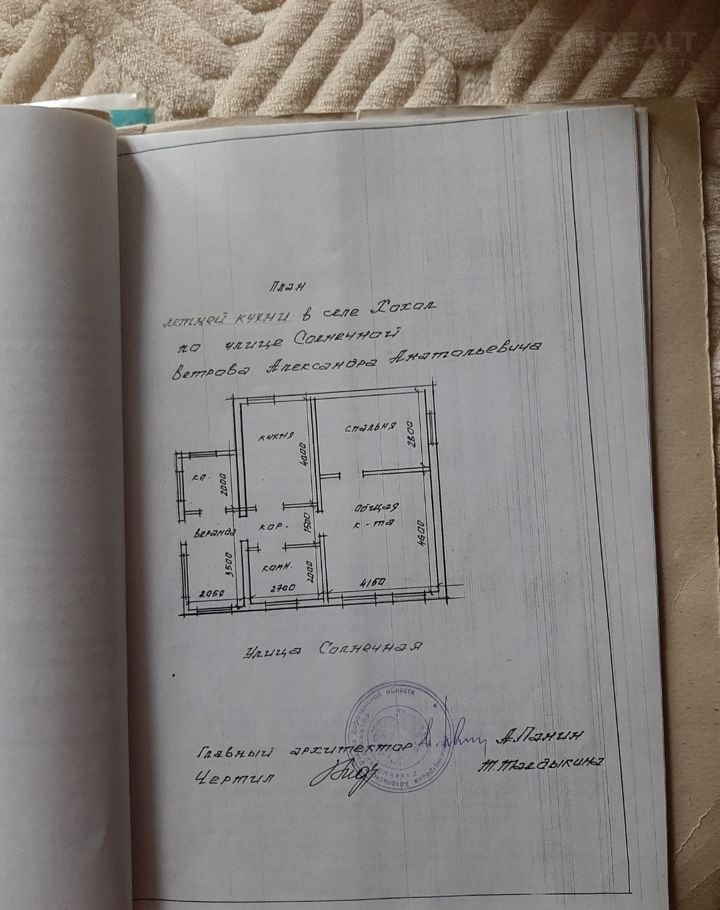 ONREALT
План
летней кухни в селе Хохол
по улице Солнечной
Ветрова Александра Анатольевича
кухня
4000
спальня
2800
кл.
2000
веранда
3500
2050
кор.
1500
Общая
к-та
4600
комн.
2000
2700
4150
Улица Солнечная
области
Главный архитектор А.Панин
Чертил